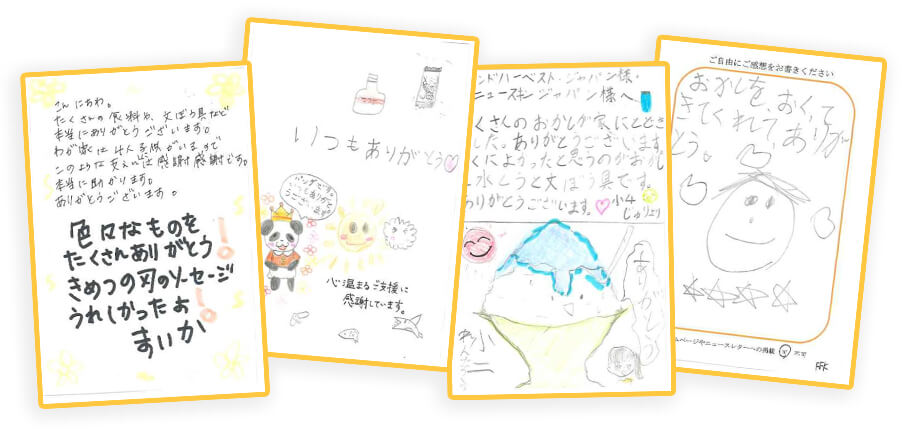 こんにちわ。
たくさんの食料や、文ぼう具など
本当にありがとうございます。
わが家は4人家族がいますので
このような支えには感謝感謝です。
本当に助かります。
ありがとうございます。
色々なものを
たくさんありがとう!
きめつの刃のソーセージ
うれしかったよ!
すいか
いつもありがとう
パンダですが
いつもありがとう
ございます
心温まるご支援に
感謝しています。
ンドハーベスト・ジャパン様・
ニュースキンジャパン様へ
くさんのおかしが家にとどき
した。ありがとうございます。
くによかったと思うのがおかし
水とうと文ぼう具です。
ありがとうございます。小4
じゅりより
ありがとう
小一
ご自由にご感想をお書きください
おかしを、おくて
きてくれて、ありが
とう。
ムページやニュースレターへの掲載 可 不可